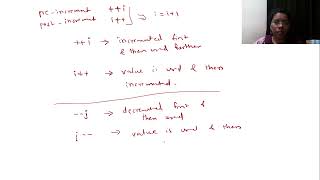 pre-increment ++i
post-increment i++ ⇒ i=i+1
++i → incremented first
& then used further
i++ → value is used & then
incremented.
--j → decremented first &
then used
j-- → value is used & then